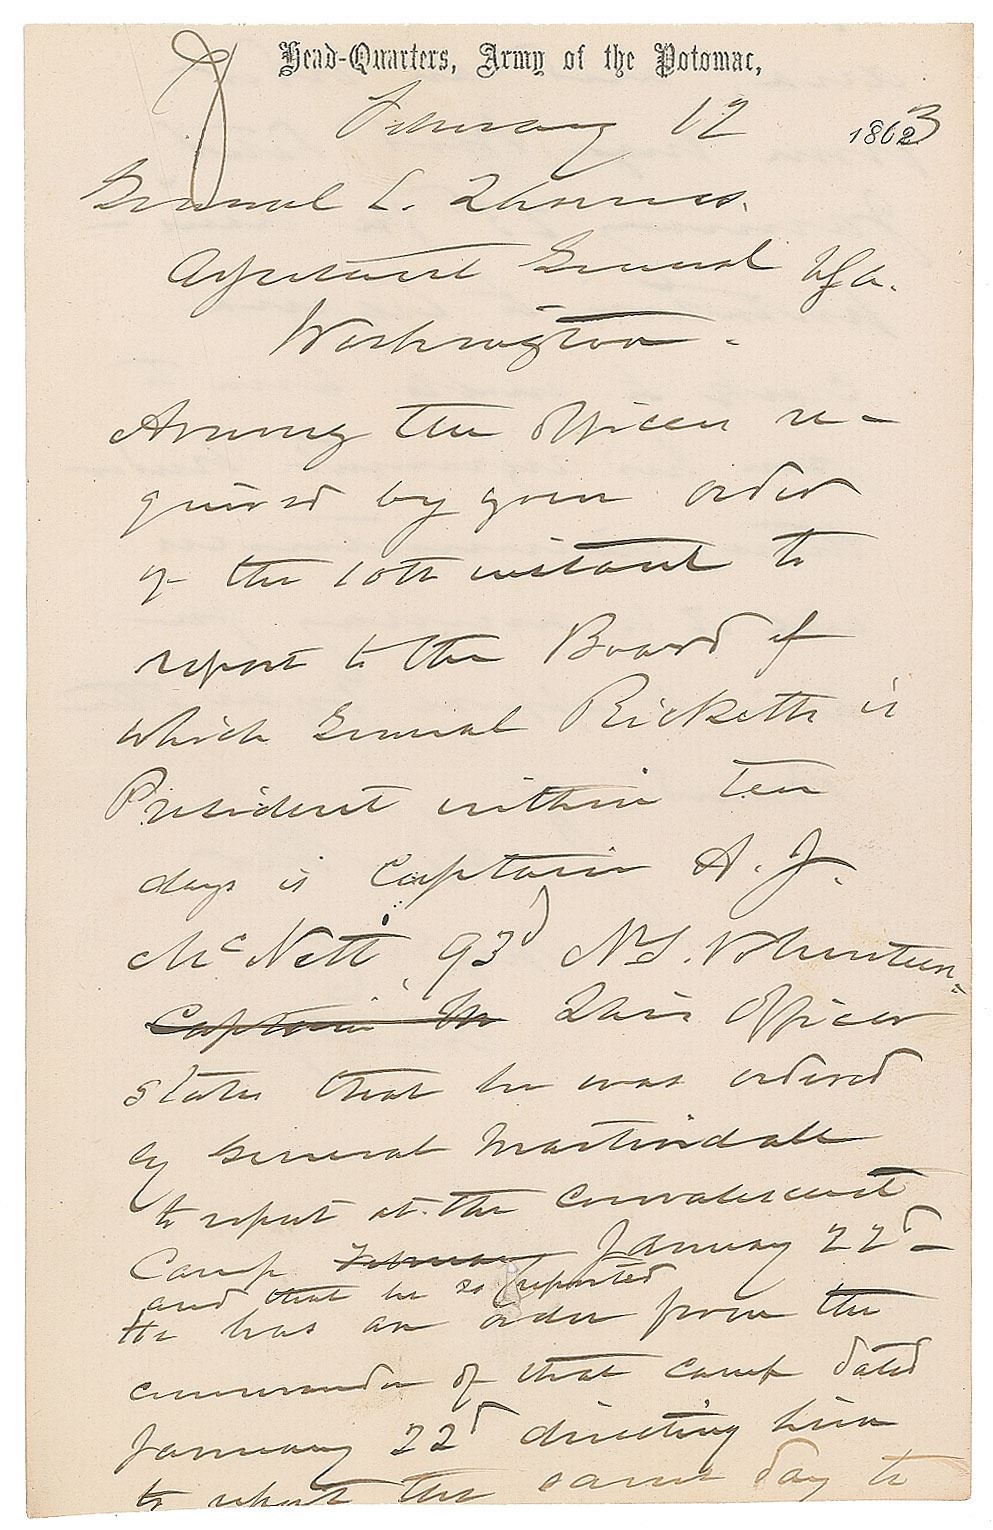 Head-Quarters, Army of the Potomac,
February 12 1863
General L. Thomas.
Adjutant General USA.
Washington.
Among the officers re-
quired by your order
of the 10th instant to
report to the Board of
which General Ricketts is
President within ten
days is Captain A. J.
McNett 93d N.Y. Volunteers.
Captain M This officer
states that he was ordered
by General Martindale
to report at the Convalescent
Camp February January 22d -
and that he so reported
He has an order from the
commander of that camp dated
January 22d directing him
to report the same day to